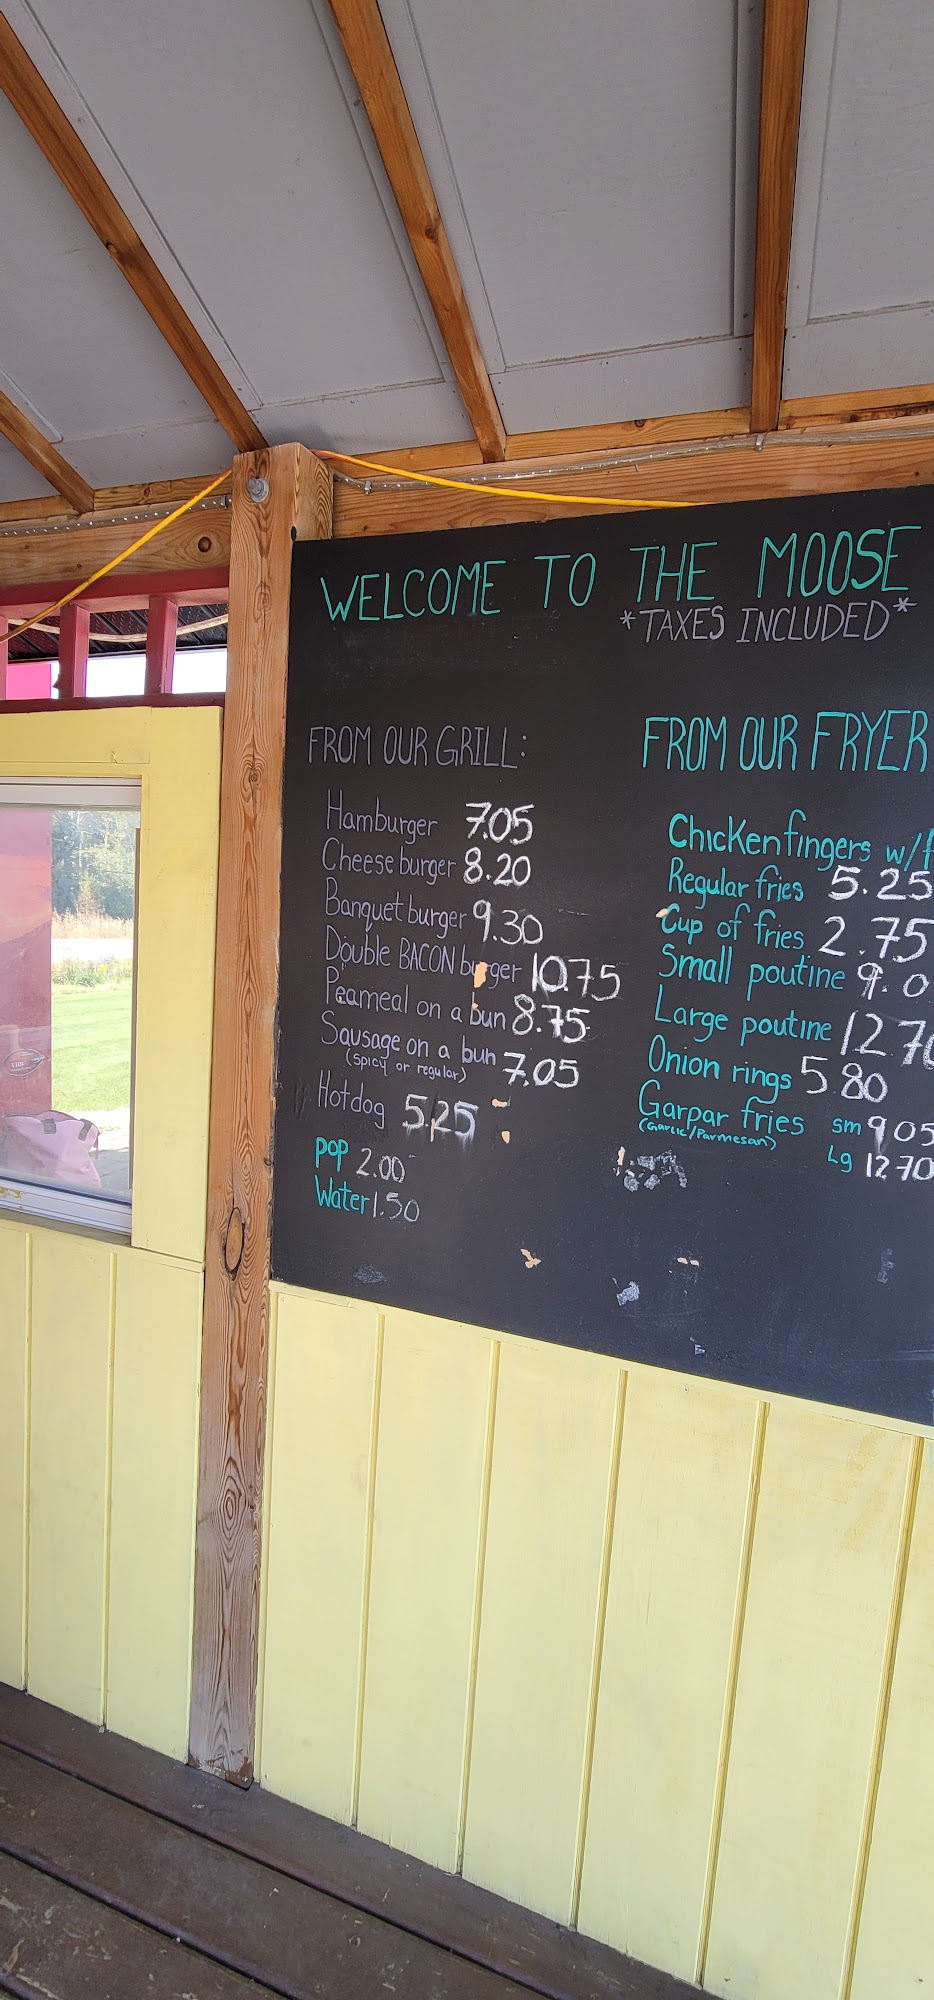 WELCOME TO THE MOOSE
*TAXES INCLUDED*
FROM OUR GRILL:
Hamburger 7.05
Cheese burger 8.20
Banquet burger 9.30
Double BACON burger 10.75
Peameal on a bun 8.75
Sausage on a bun 7.05
(spicy or regular)
Hotdog 5.25
pop 2.00
Water 1.50
FROM OUR FRYER
Chicken fingers w/
Regular fries 5.25
Cup of fries 2.75
Small poutine 9.0
Large poutine 12.70
Onion rings 5.80
Garpar fries sm 9.05
(Garlic/Parmesan)
Lg 12.70